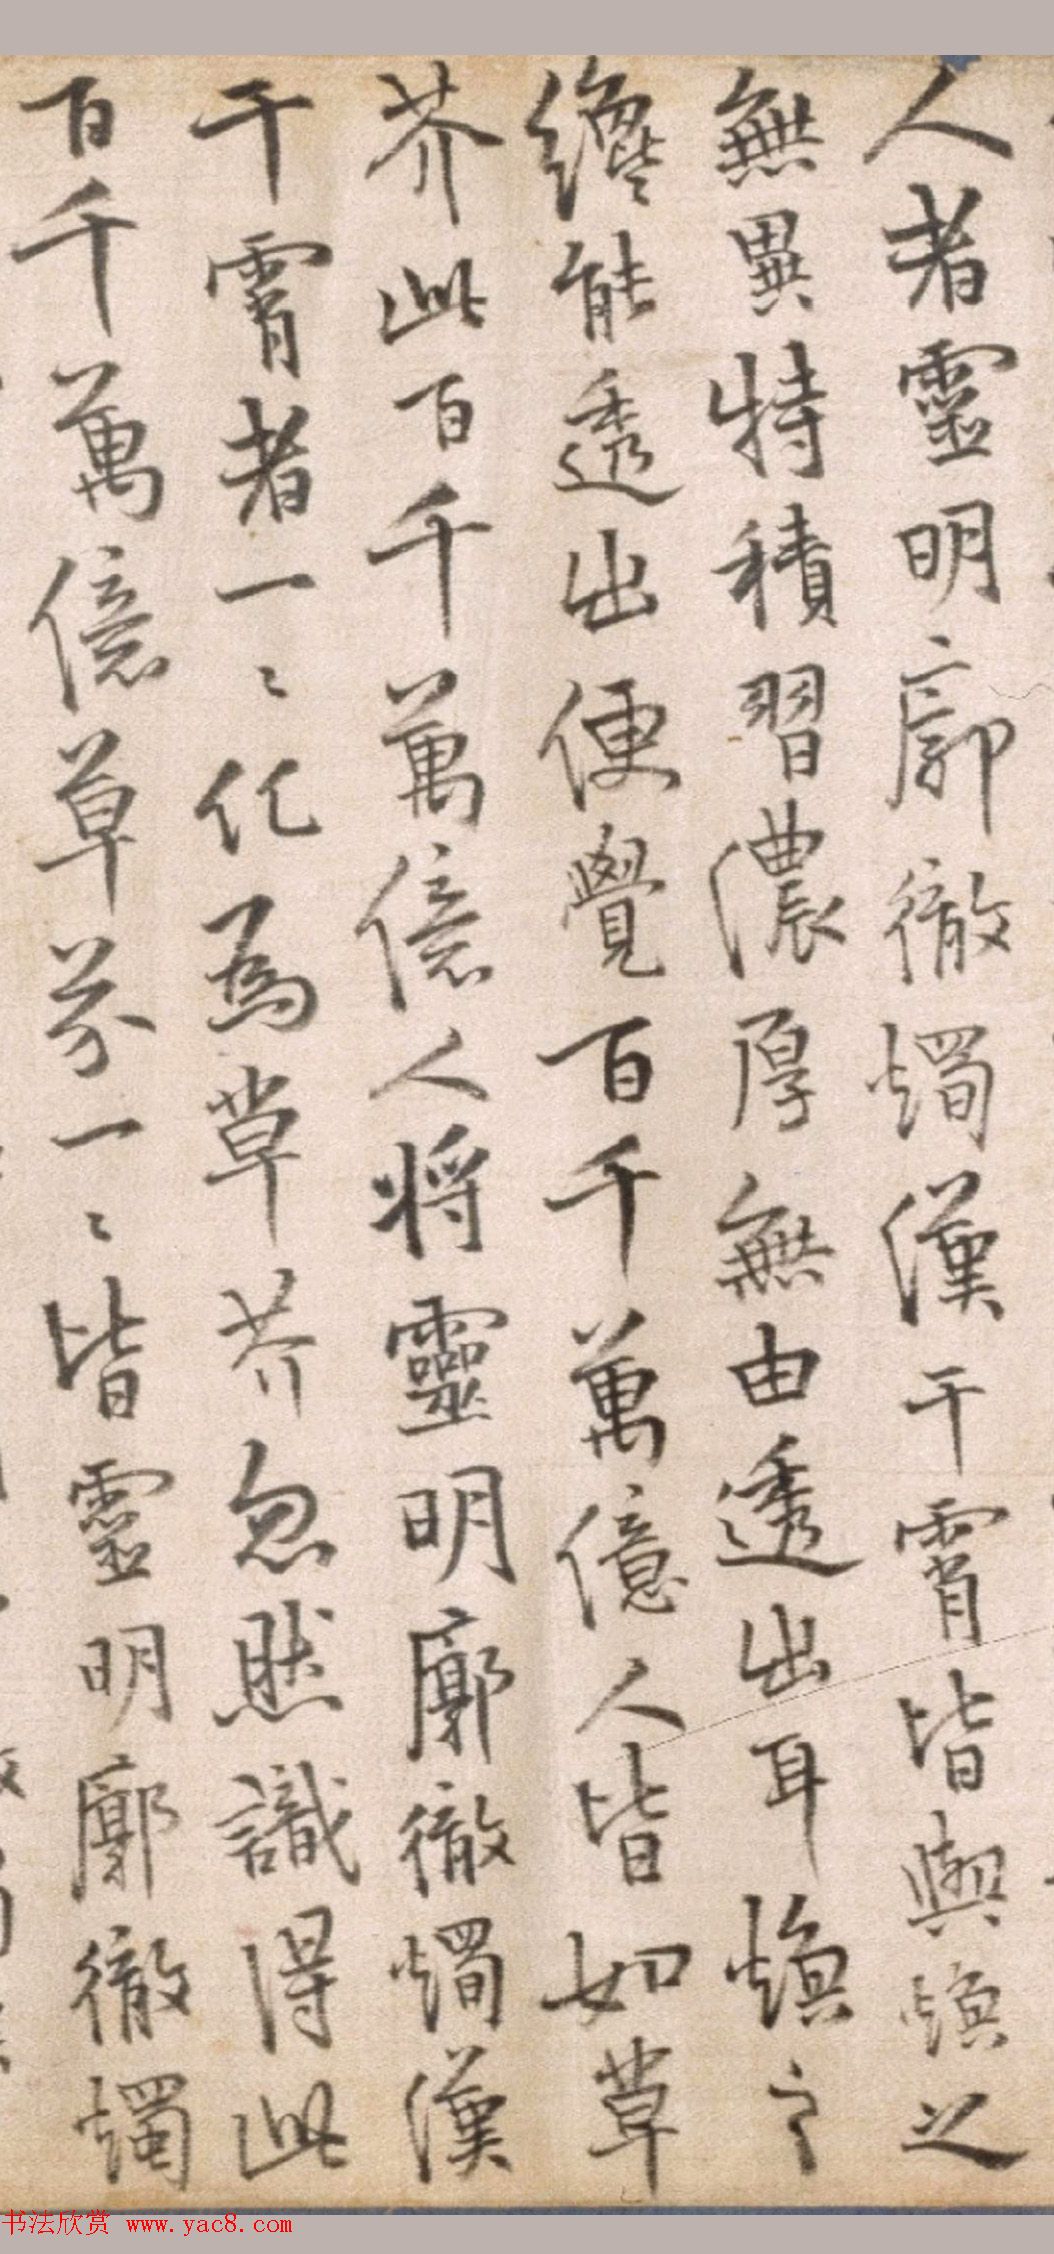 人者靈明廓徹燭漢干霄皆與慎之
無異特積習濃厚無由透出耳慎之
纔能透出便覺百千萬億人皆如草
芥此百千萬億人將靈明廓徹燭漢
干霄者一〻化為草芥忽然識得此
百千萬億草芥一〻皆靈明廓徹燭
书法欣赏 www.yac8.com